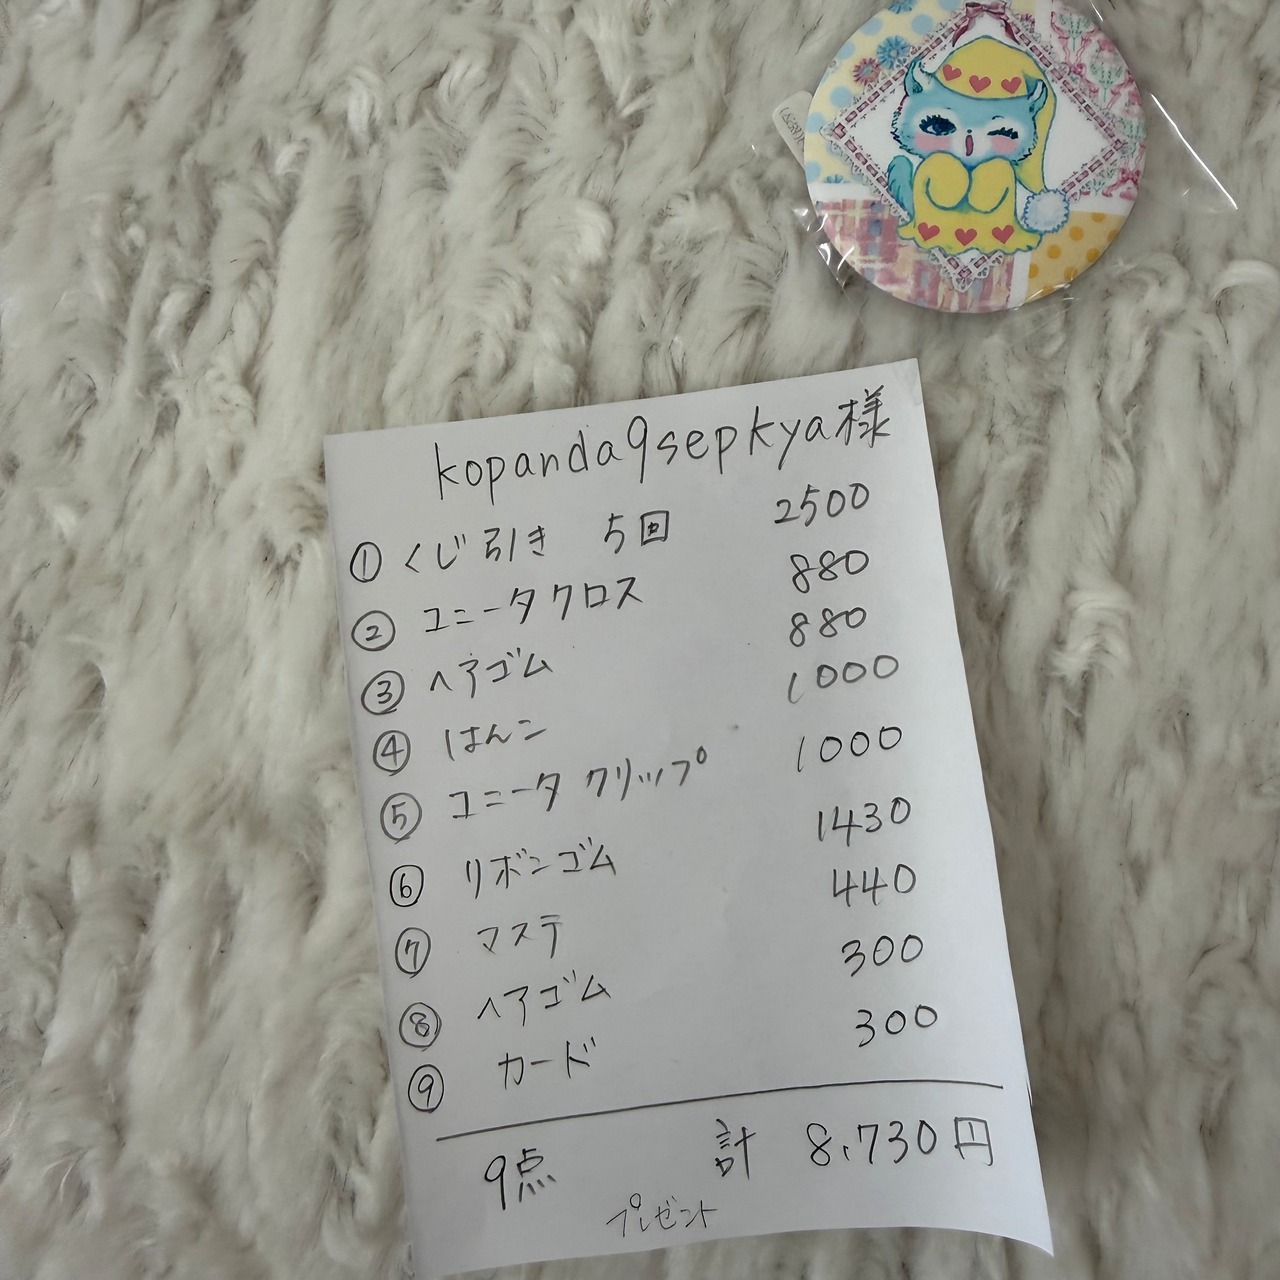 kopanda9sepkya様
① くじ引き 5回 2500
② ユニータクロス 880
③ ヘアゴム 880
④ はんこ 1000
⑤ ユニータ クリップ 1000
⑥ リボンゴム 1430
⑦ マステ 440
⑧ ヘアゴム 300
⑨ カード 300
9点 計 8,730円
プレゼント